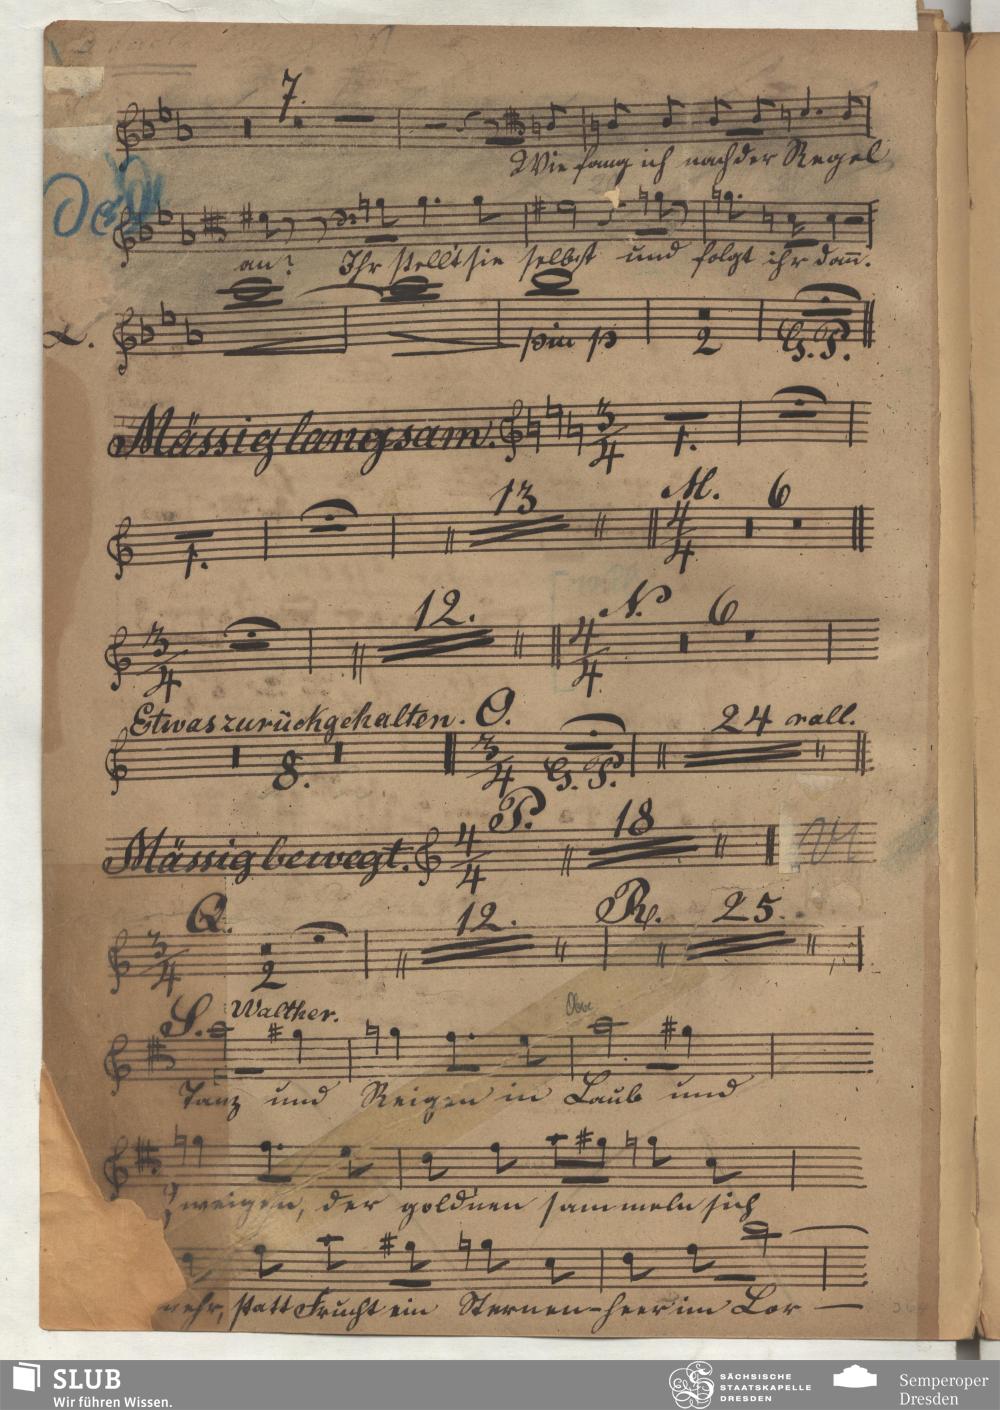 7.
Wie fang ich nach der Regel
an? Ihr stellt sie selbst und folgt ihr dann.
L.
più p
2
G. P.
Mässig langsam. 3/4 1.
1. 13 M. 4/4 6
3/4 12. N. 4/4 6
Etwas zurückgehalten. O.
8. 3/4 G. P. 24 rall.
Mässig bewegt. 4/4 P. 18
Q. 3/4 2 12. R. 25.
S. Walther.
Tanz und Reigen in Laub und
Zweigen, der goldnen sammeln sich
mehr, statt Frucht ein Sternen-heer im Lor —
SLUB
Wir führen Wissen.
SÄCHSISCHE
STAATSKAPELLE
DRESDEN
Semperoper
Dresden